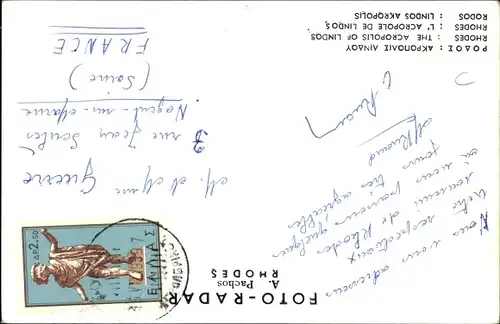 ΡΟΔΟΣ : ΑΚΡΟΠΟΛΙΣ ΛΙΝΔΟΥ
RHODES : THE ACROPOLIS OF LINDOS
RHODES : L' ACROPOLE DE LINDOS
RODOS : LINDOS AKROPOLIS
Nous vous adressons
notre respectueux
souvenir de Rhodes
où nous passons quelques
jours très agréables
FOTO - RADAR
A. Pachos
RHODES
ΕΛΛΑΣ
ΔΡ. 2.50
M. et Mme Guerre
3 rue Jean
Nogent-sur-Marne
(Seine)
FRANCE